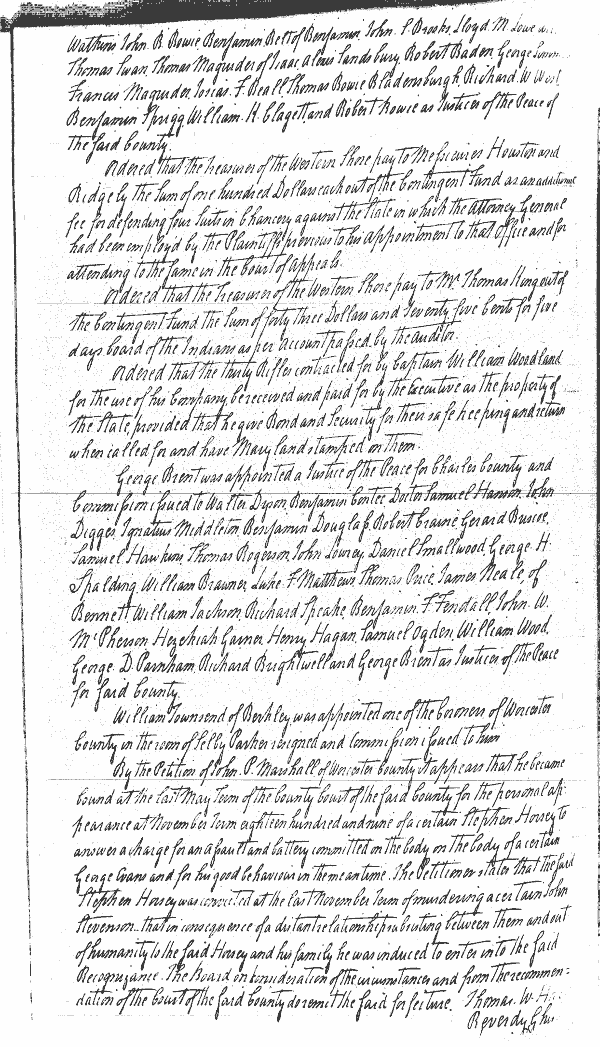 Watkins John. B. Bowie Benjamin Belt of Benjamin, John. S. Brooke, Lloyd. M. Lowe
Thomas Swan, Thomas Magruder of Isaac Alexis Sandsbury, Robert Baden, George
Francis Magruder, Josias. F. Beall, Thomas Bowie Bladensburgh, Richard. W. West
Benjamin Sprigg, William. H. Clagett and Robert Bowie as Justices of the Peace of
the said County.
Ordered that the Treasurer of the Western Shore pay to Messieurs Houston and
Ridgely the sum of one hundred Dollars each out of the Contingent Fund as an additional
fee for defending four suits in Chancery against the State in which the Attorney General
had been employd by the Plaintiffs previous to his appointment to that office and for
attending to the same in the Court of Appeals.
Ordered that the Treasurer of the Western Shore pay to Mr. Thomas King out of
the Contingent Fund the sum of forty three Dollars and Seventy five Cents for five
days board of the Indians as per account passed by the auditor.
Ordered that the thirty Rifles contracted for by Captain William Woodland
for the use of his Company be received and paid for by the Executive as the property of
the State provided that he give Bond and Security for their safe keeping and return
when called for and have Maryland stamped on them.
George Brent was appointed a Justice of the Peace for Charles County and
Commission issued to Walter Dyson, Benjamin Contee, Doctor Samuel Hanson, John
Digges, Ignatius Middleton, Benjamin Douglass, Robert Crane Gerard Briscoe,
Samuel Hawkins Thomas Rogerson, John Lowrey, Daniel Smallwood, George. H.
Spalding, William Brawner, Luke. F. Matthews Thomas Price, James Neale, of
Bennett William Jackson, Richard Speake, Benjamin. F. Fendall, John. W.
McPherson Hezekiah Garner, Henry Hagan, Samuel Ogden, William Wood,
George. D. Parnham, Richard Brightwell and George Brent as Justices of the Peace
for said County.
William Townsend of Berkley was appointed one of the Coroners of Worcester
County in the room of Selby Parker resigned and Commission issued to him
By the Petition of John. P. Marshall of Worcester County it appears that he became
bound at the last May Term of the County Court of the said County for the personal ap-
pearance at November Term eighteen hundred and nine of a certain Stephen Horsey to
answer a charge for an assault and battery committed on the body on the body of a certain
George Evans and for his good behaviour in the mean time. The Petitioner states that the said
Stephen Horsey was convicted at the last November Term of murdering a certain John
Stevenson. that in consequence of a distant relationship subsisting between them and out
of humanity to the said Horsey and his family he was induced to enter into the said
Recognizance. The Board on consideration of the circumstances and from the recommen=
dation of the Court of the said County do remit the said forfeiture. Thomas. W.
Reverdy